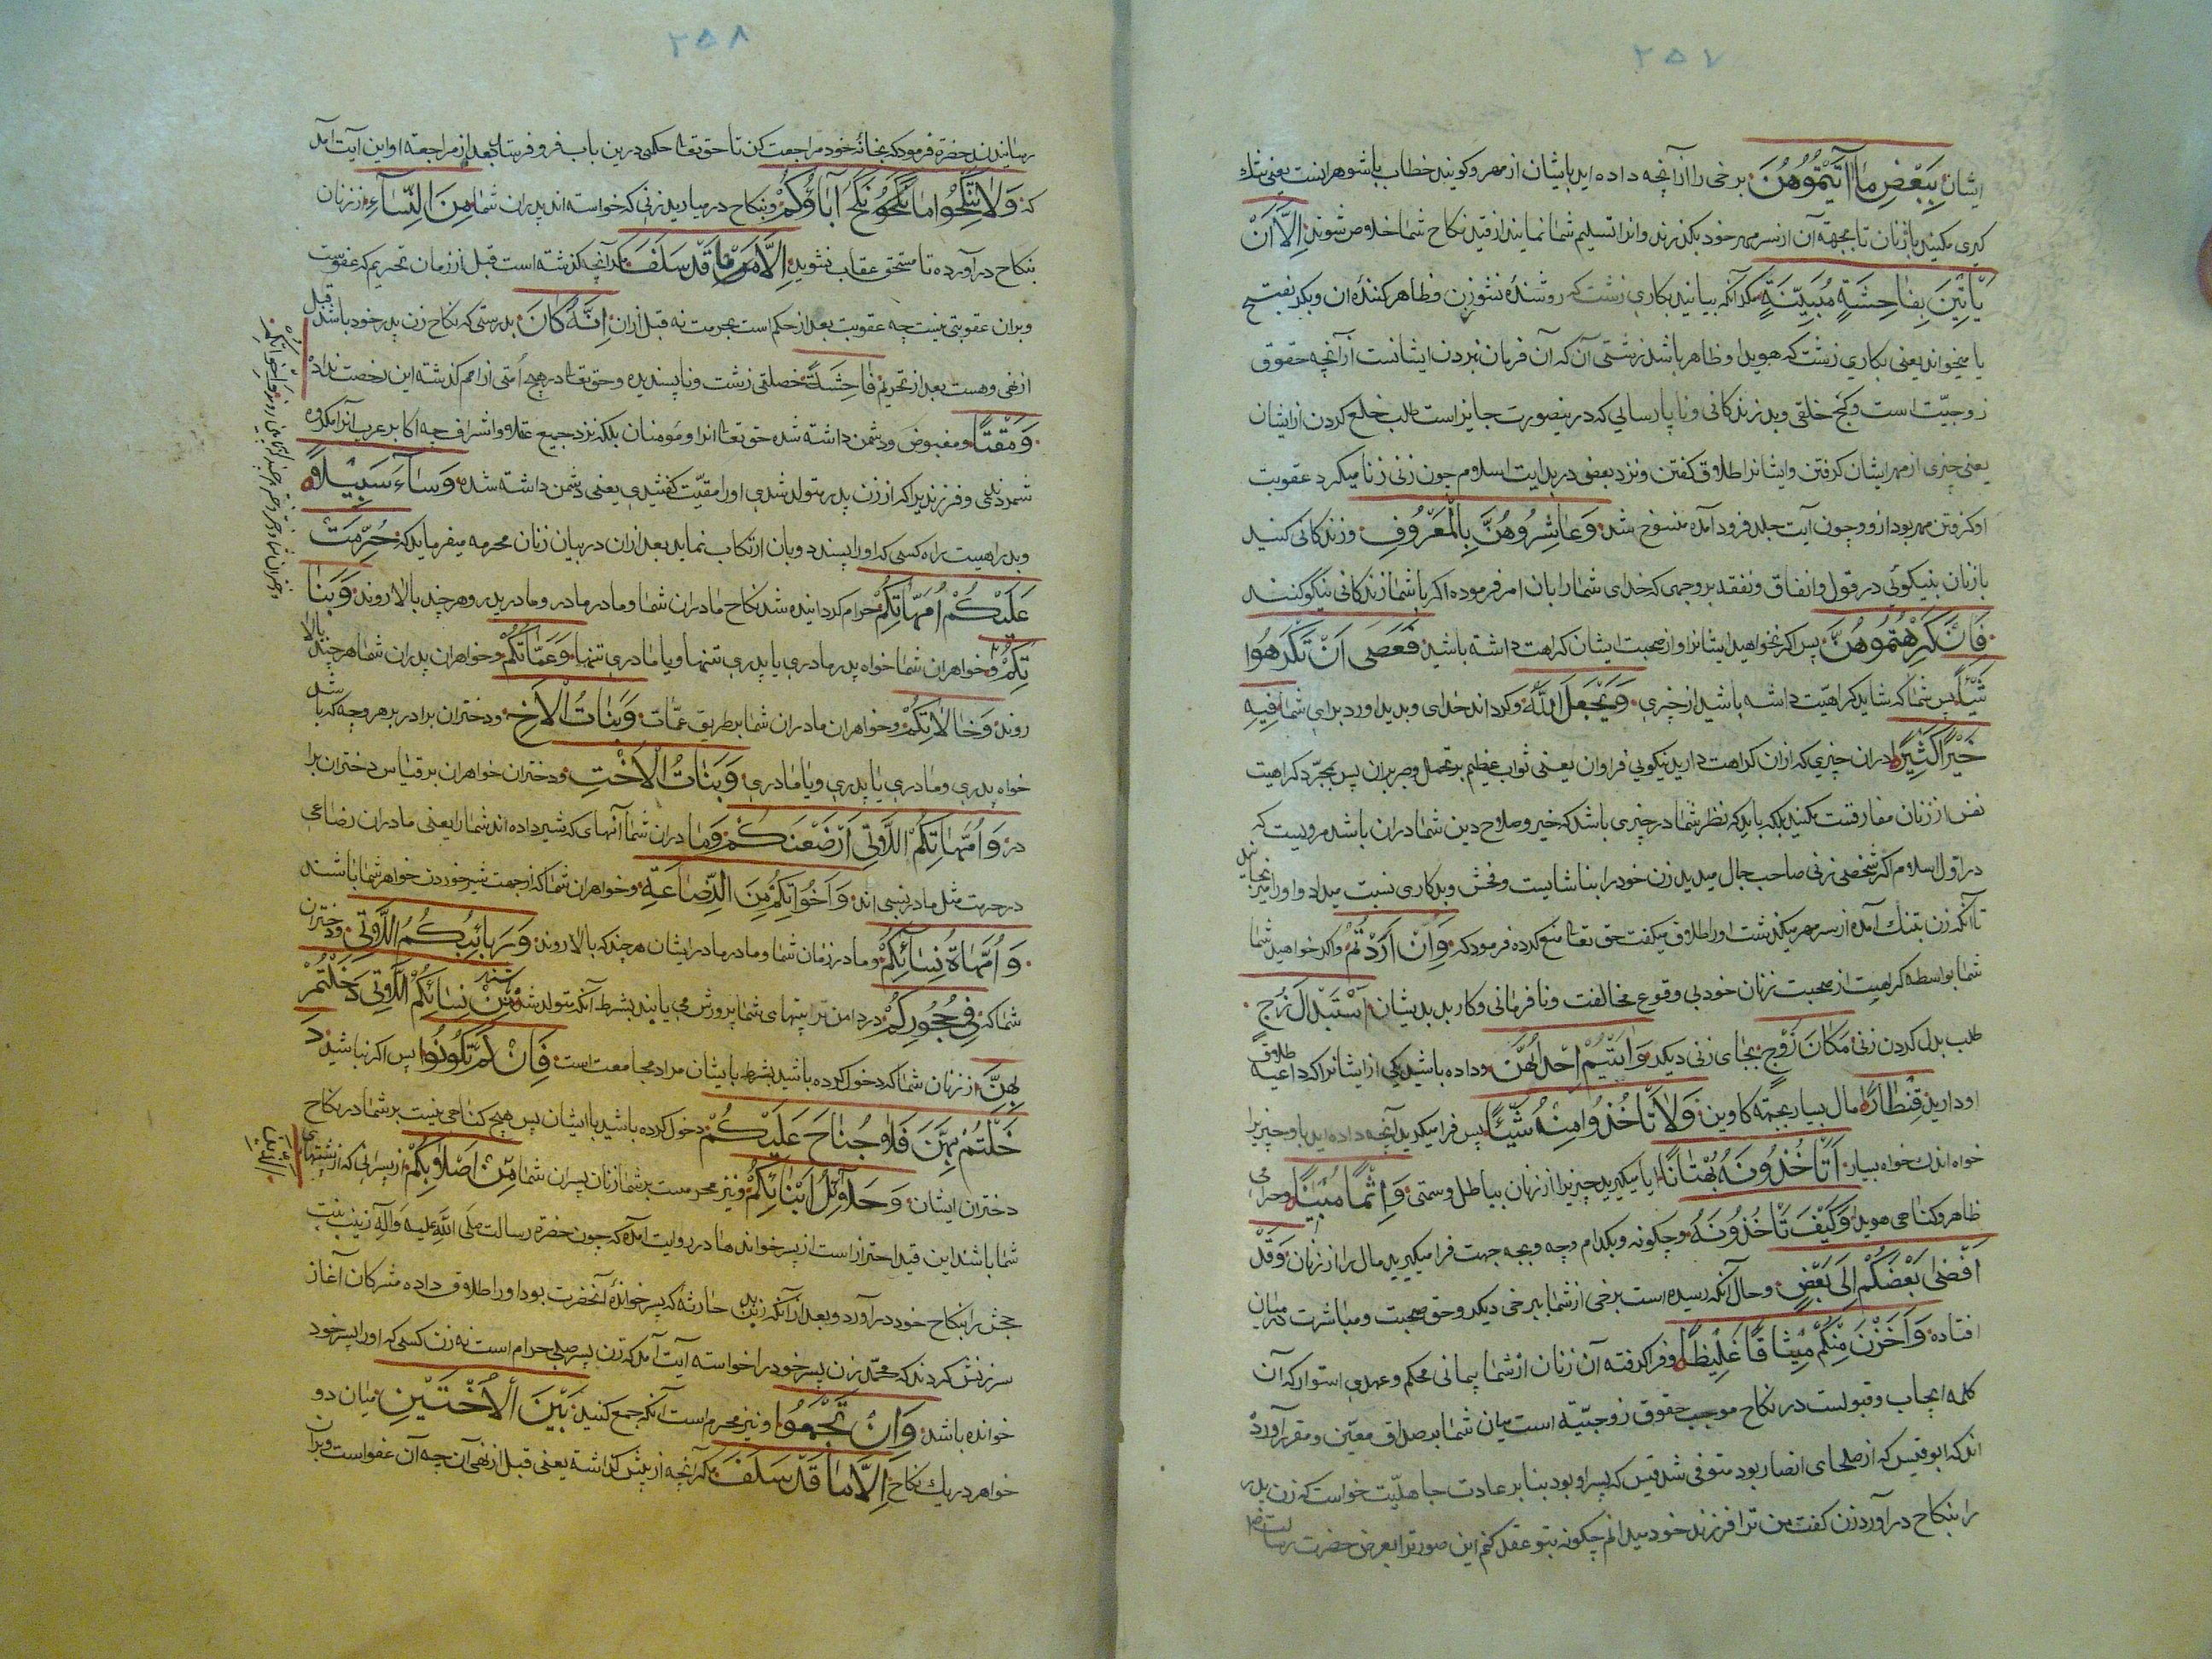 ۲۵۷
ایشان بِبَعْضِ مٰا آتَیْتُمُوهُنَّ برخی را از آنچه داده اید بایشان از مهر و کویند خطاب با شوهرانست یعنی
کیری مکنید با زنان تا بجهة آن از سر مهر خود بکذرند و انرا تسلیم شما نمایند از قید نکاح شما خلاص شوند اِلّٰا اَنْ
یَأْتِینَ بِفٰاحِشَةٍ مُبَیِّنَةٍ مکر آنکه بیایند بکاری زشت که روشنده نشوز زن و ظاهر کننده ان و بکر بفتح
یا میخواند یعنی بکاری زشت که هویدا و ظاهر باشد زشتی آن که آن فرمان نبردن ایشانست از آنچه حقوق
زوجیّت است و کج خلقی و بد زندکانی و ناپارسایی که درینصورت جایز است طلب خلع کردن از ایشان
یعنی چیزی از مهر ایشان کرفتن و ایشانرا طلاق کفتن و نزد بعضی در بدایت اسلام چون زنی زنا میکرد عقوبت
او کرفتن مهر بود ازو و چون آیت جلد فرود آمده منسوخ شد وَ عٰاشِرُوهُنَّ بِالْمَعْرُوفِ و زندکانی کنید
بازنان بنیکوئی در قول و انفاق و نفقه بروجهی که خدای شما را بان امر فرموده اکر با شما زندکانی نیکو کنند
فَاِنْ کَرِهْتُمُوهُنَّ پس اکر نخواهید ایشانرا و از صحبت ایشان کراهت داشته باشید فَعَصَی اَنْ تَکْرَهُوا
شَیْئًا پس شما که شاید کراهیّت داشته باشید از چیزی وَ یَجْعَلَ اللّٰهُ و کرداند خدای و بدید اورد برای شما فِیهِ
خَیْرًا کَثِیرًا دران چیزی که ازان کراهت دارید نیکویی فراوان یعنی ثواب عظیم بر تحمل و صبر بران پس بمجرّد کراهیت
نفس از زنان مفارقت مکنید بلکه باید که نظر شما در چیزی باشد که خیر و صلاح دین شما دران باشد مرویست که
در اوّل اسلام اکر شخصی زنی صاحب جمال میدید زن خود را بناشایست و فحش و بدکاری نسبت میداد و اورا
تا آنکه زن بتنك آمده از سر مهر میکذشت اورا طلاق میکفت حق تعا منع کرده فرمود که وَ اِنْ اَرَدْتُمْ و اکر خواهید شما
شما بواسطه کراهیت از صحبت زنان خود بی وقوع مخالفت و نافرمانی و کار بد بدیشان اسْتِبْدٰالَ زَوْجٍ
طلب بدل کردن زنی مَکٰانَ زَوْجٍ بجای زنی دیکر وَ اٰتَیْتُمْ اِحْدٰاهُنَّ و داده باشید یکی از ایشانرا که داعیه طلاق
او دارید قِنْطٰارًا مال بسیار بجهته کاوین وَلٰا تَاخُذُوا مِنْهُ شَیْئًا پس فرا میکیرید آنچه داده اید باو چیزیرا
خواه اندك خواه بسیار اَتَاخُذُونَهُ بُهْتٰانًا ایا میکیرید چیزیرا از زنان بباطل و ستمی وَ اِثْمًا مُبِینًا و جزای
ظاهر و کناهی هویدا وَ کَیْفَ تَاخُذُونَهُ و چکونه و بکدام وجه و بچه جهت فرا میکیرید مال را از زنان وَ قَدْ
اَفْضٰی بَعْضُکُمْ اِلَی بَعْضٍ و حال آنکه رسیده است برخی از شما ببرخی دیکر و حق صحبت و مباشرت درمیان
افتاده وَ اَخَذْنَ مِنْکُمْ مِیثٰاقًا غَلِیظًا و فرا کرفته آن زنان از شما پیمانی محکم و عهدی استوار که آن
کلمه ایجاب و قبولست در نکاح موجب حقوق زوجیّیة است میان شما بر صداق معیّن و مقرر آورده
اند که ابو قیس که از صلحای انصار بود متوفی شد قیس که پسر او بود بنا بر عادت جاهلیّت خواست که زن پدر
را بنکاح در آورد زن کفت من ترا فرزند خود میدانم چکونه بتو عقد کنم این صورترا بعرض حضرت رسالت
۲۵۸
رسانیدند حضرة فرمود که بخانه خود مراجعت کن تا حق تعا حکمی درین باب فرو فرستد بعد از مراجعة او این آیت آمد
که وَلٰا تَنْکِحُوا مٰا نَکَحَ آبٰاؤُکُمْ و بنکاح در میارید زنی که خواسته اند پدران شما مِنَ النِّسٰآءِ از زنان
بنکاح در آورده تا مستحق عقاب نشوید اِلّٰا مٰا قَدْ سَلَفَ مکر آنچه کذشته است قبل از زمان تحریم که عفوست
و بران عقوبتی نیست چه عقوبت بعد از حکم است بحرمت نه قبل ازان اِنَّهُ کَانَ بدرستی که نکاح زن پدر خود باشد قبل
از نهی و هست بعد از تحریم فٰاحِشَةً خصلتی زشت و ناپسندیده و حق تعا در هیچ اُمّتی از امم کذشته این رخصت نداد
وَ مَقْتًا و مغبوض و دشمن داشته شده حق تعا انرا و مومنان بلکه نزد جمیع عقلا و اشراف چه اکابر عرب انرا مکروه
شمردندی و فرزندیرا که از زن پدر متولد شدی اورا مقیّت کفتندی یعنی دشمن داشته شده وَ سٰآءَ سَبِیلًا
و بد راهیست براه کسی که اورا پسندد و بان ارتکاب نماید بعد ازان در بیان زنان محرمه میفرماید که حُرِّمَتْ
عَلَیْکُمْ اُمَّهٰاتُکُمْ حرام کردانیده شد نکاح مادران شما و مادر مادر و مادر پدر و هر چند بالا روند وَ بَنٰا
تُکُمْ و خواهران شما خواه پدر مادری یا پدری تنها و یا مادری تنها وَ عَمّٰاتُکُمْ و خواهران پدران شما هر چند بالا
روند وَ خٰالٰاتُکُمْ و خواهران مادران شما بر طریق عمّات وَ بَنٰاتُ الْاَخِ و دختران برادر بر هر وجه که باشد
خواه پدری و مادری یا پدری و یا مادری وَ بَنٰاتُ الْاُخْتِ و دختران خواهران بر قیاس دختران برا
در وَ اُمَّهٰاتُکُمُ اللّٰاتِی اَرْضَعْنَکُمْ و مادران شما آنهای که شیر داده اند شما را یعنی مادران رضاعی
در حرمت مثل مادر نسبی اند وَ اَخَوٰاتُکُمْ مِنَ الرَّضٰاعَةِ و خواهران شما که از جهت شیر خوردن خواهر شما باشند
وَ اُمَّهٰاةُ نِسٰائِکُمْ و مادر زنان شما و مادر مادر ایشان هر چند که بالا روند وَ رَبٰائِبُکُمُ اللّٰاتِی و دختران
شما که فِی حُجُورِکُمْ در دامن تربیتهای شما پرورش می یابند بشرط آنکه متولد شده مِنْ نِسٰائِکُمُ اللّٰاتِی دَخَلْتُمْ
بِهِنَّ از زنان شما که دخول کرده باشید بایشان مراد مجامعت است فَاِنْ لَمْ تَکُونُوا پس اکر نباشید دَ
خَلْتُمْ بِهِنَّ فَلٰا جُنٰاحَ عَلَیْکُمْ دخول کرده باشید با ایشان پس هیچ کناهی نیست بر شما در نکاح
دختران ایشان وَ حَلٰآئِلُ اَبْنٰائِکُمُ و نیز محرمست بر شما زنان پسران شما مِنْ اَصْلٰابِکُمْ از پسرانی که از پشتهای
شما باشند این قید احتراز است از پسر خواندها در روایت آمده که چون حضرة رسالت صلی اللّٰه علیه و آله زینب بنت
جحش را بنکاح خود در آورد و بعد از آنکه زید حارثه که پسر خوانده آنحضرت بود اورا طلاق داده مشرکان آغاز
سرزنش کردند که محمّد زن پسر خود را خواسته آیت آمد که زن پسر صلبی حرام است نه زن کسی که اورا پسر خود
خوانده باشد وَ اَنْ تَجْمَعُوا و نیز محرم است آنکه جمع کنید بَیْنَ الْاُخْتَیْنِ میان دو
خواهر در یك نکاح اِلّٰا مٰا قَدْ سَلَفَ مکر آنچه از پیش کذاشته یعنی قبل از نهی آن چه آن عفو است و بران
الذین